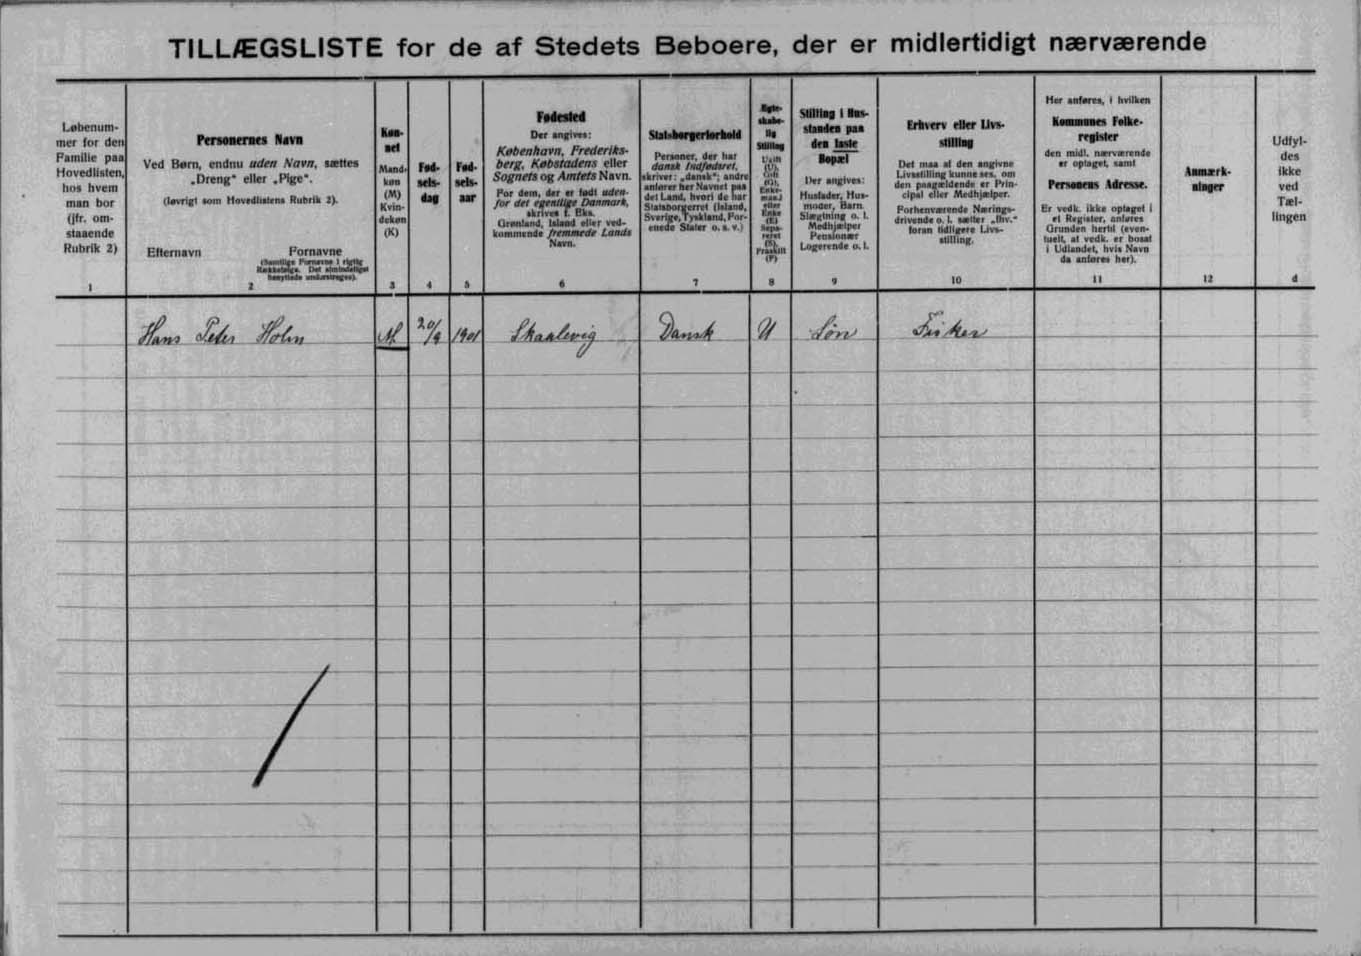 TILLÆGSLISTE for de af Stedets Beboere, der er midlertidigt nærværende
Løbenum-
mer for den
Familie paa
Hovedlisten,
hos hvem
man bor
(jfr. om-
staaende
Rubrik 2)
1
Personernes Navn
Ved Børn, endnu uden Navn, sættes
„Dreng“ eller „Pige“.
(Iøvrigt som Hovedlistens Rubrik 2).
Efternavn Fornavne
(Samtlige Fornavne i rigtig
Rækkefølge. Det almindeligst
benyttede understreges).
2
Køn-
net
Mand-
køn
(M)
Kvin-
dekøn
(K)
3
Fød-
sels-
dag
4
Fød-
sels-
aar
5
Fødested
Der angives:
København, Frederiks-
berg, Købstadens eller
Sognets og Amtets Navn.
For dem, der er født uden-
for det egentlige Danmark,
skrives f. Eks.
Grønland, Island eller ved-
kommende fremmede Lands
Navn.
6
Statsborgerforhold
Personer, der har
dansk Indfødsret,
skriver: „dansk“; andre
anfører her Navnet paa
det Land, hvori de har
Statsborgerret (Island,
Sverige, Tyskland, For-
enede Stater o. s. v.)
7
Egte-
skabe-
lig
Stilling
Ugift
(U),
Gift
(G),
Enke-
mand
eller
Enke
(E)
Sepa-
reret
(S),
Fraskilt
(F)
8
Stilling i Hus-
standen paa
den faste
Bopæl
Der angives:
Husfader, Hus-
moder, Barn.
Slægtning o. l.
Medhjælper
Pensionær
Logerende o. l.
9
Erhverv eller Livs-
stilling
Det maa af den angivne
Livsstilling kunne ses, om
den paagældende er Prin-
cipal eller Medhjælper.
Forhenværende Nærings-
drivende o. l. sætter „fhv.“
foran tidligere Livs-
stilling.
10
Her anføres, i hvilken
Kommunes Folke-
register
den midl. nærværende
er optaget, samt
Personens Adresse.
Er vedk. ikke optaget i
et Register, anføres
Grunden hertil (even-
tuelt, at vedk. er bosat
i Udlandet, hvis Navn
da anføres her).
11
Anmærk-
ninger
12
Udfyl-
des
ikke
ved
Tæl-
lingen
d
Hans Peter Holm M. 20/9 1901 Skaalevig Dansk U Søn Fisker